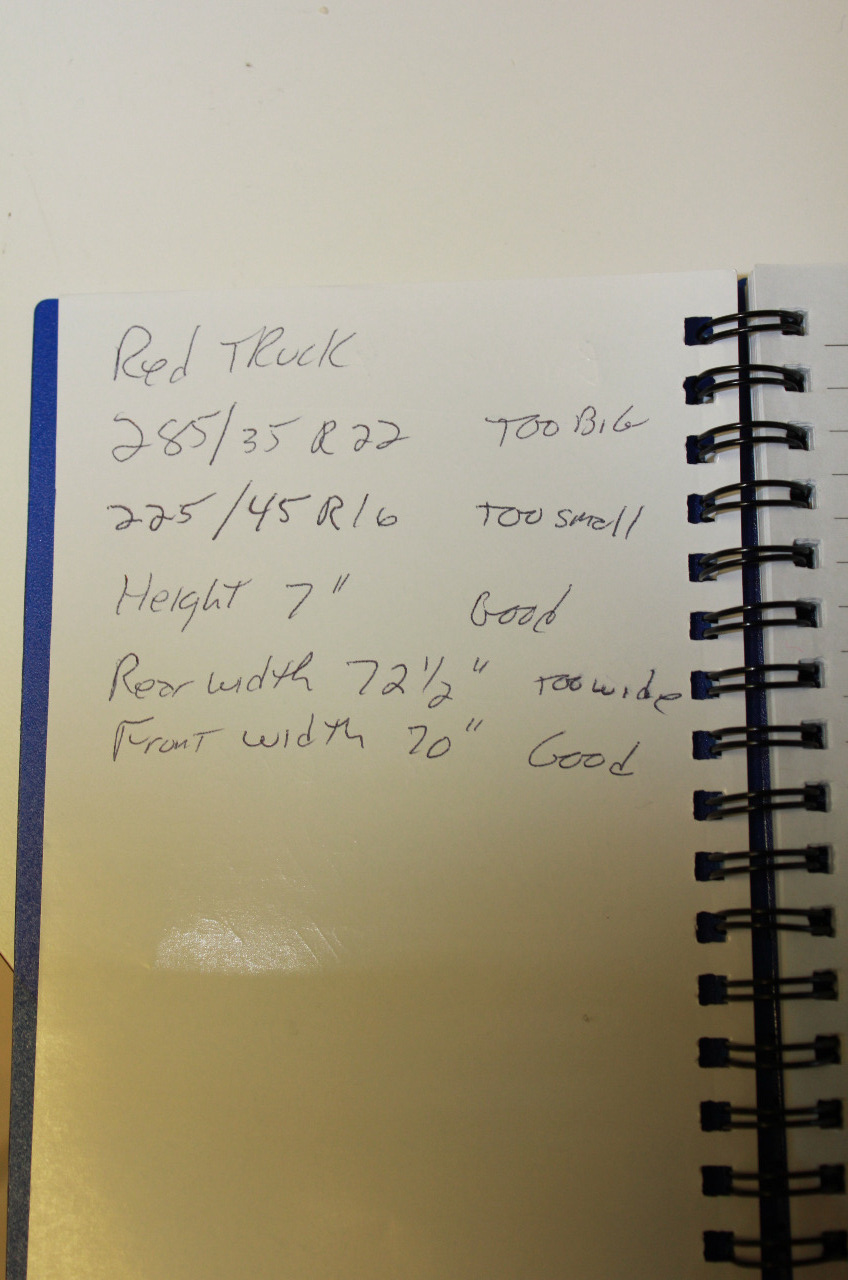 Red TRuck
285/35 R22 TOO BIG
225/45 R16 TOO small
Height 7" Good
Rear width 72 1/2" TOO wide
Front width 70" Good